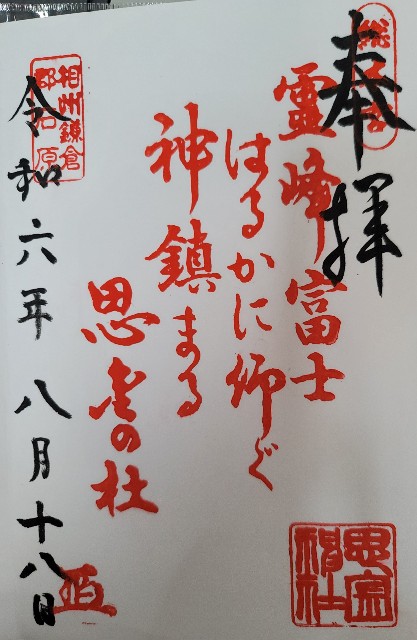 奉拝
霊峰富士
はるかに仰ぐ
神鎮まる
思金の杜
相州鎌倉
郡石原
令和六年八月十八日
思金
神社